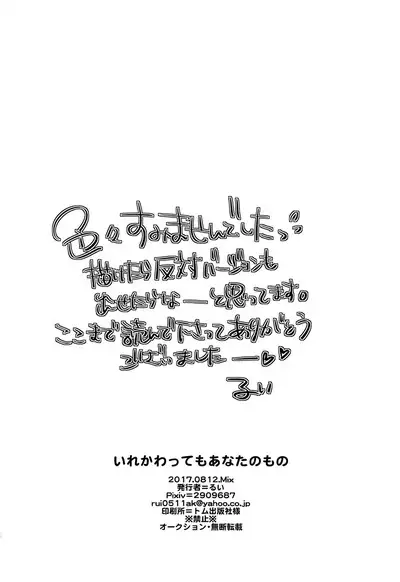 色々すみませんでしたっっ
描けたら反対バージョンも
のせたいなーーと思ってます。
ここまで読んで下さってありがとう
ございましたーー♡♡
るい
いれかわってもあなたのもの
2017.0812.Mix
発行者=るい
Pixiv=2909687
rui0511ak@yahoo.co.jp
印刷所=トム出版社様
※禁止※
オークション・無断転載